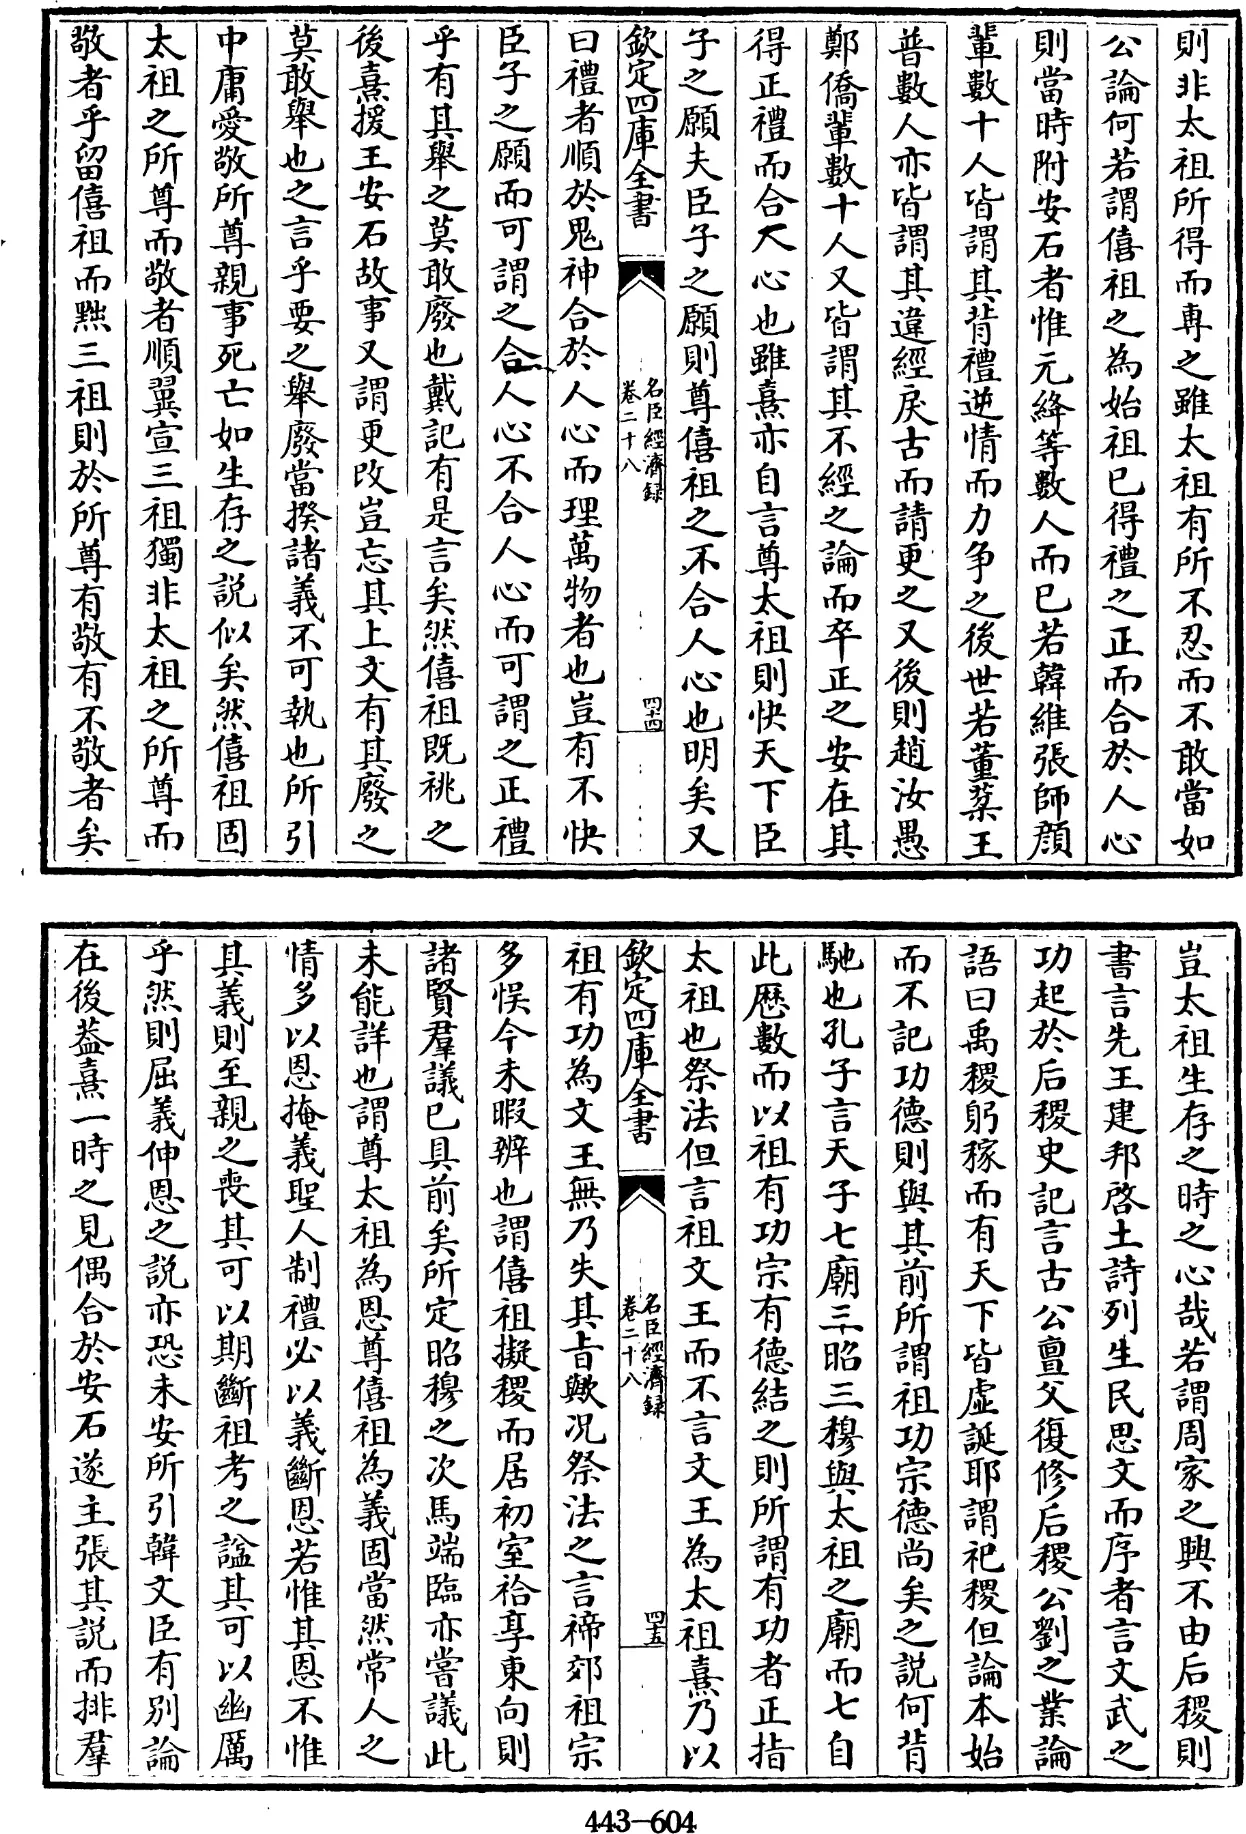 則非太祖所得而専之雖太祖有所不忍而不敢當如
公論何若謂僖祖之為始祖已得禮之正而合於人心
則當時附安石者惟元絳等數人而已若韓維張師顔
輩數十人皆謂其背禮逆情而力爭之後世若董棻王
普數人亦皆謂其違經戾古而請更之又後則趙汝愚
鄭僑輩數十人又皆謂其不經之論而卒正之安在其
得正禮而合人心也雖熹亦自言尊太祖則快天下臣
子之願夫臣子之願則尊僖祖之不合人心也明矣又
欽定四庫全書
名臣經濟録
卷二十八
四十四
曰禮者順於鬼神合於人心而理萬物者也豈有不快
臣子之願而可謂之合人心不合人心而可謂之正禮
乎有其舉之莫敢廢也戴記有是言矣然僖祖既祧之
後熹援王安石故事又謂更改豈忘其上文有其廢之
莫敢舉也之言乎要之舉廢當揆諸義不可執也所引
中庸愛敬所尊親事死亡如生存之説似矣然僖祖固
太祖之所尊而敬者順翼宣三祖獨非太祖之所尊而
敬者乎留僖祖而黜三祖則於所尊有敬有不敬者矣
豈太祖生存之時之心哉若謂周家之興不由后稷則
書言先王建邦啓土詩列生民思文而序者言文武之
功起於后稷史記言古公亶父復修后稷公劉之業論
語曰禹稷躬稼而有天下皆虚誕耶謂祀稷但論本始
而不記功德則與其前所謂祖功宗德尚矣之説何背
馳也孔子言天子七廟三昭三穆與太祖之廟而七自
此歴數而以祖有功宗有德結之則所謂有功者正指
太祖也祭法但言祖文王而不言文王為太祖熹乃以
欽定四庫全書
名臣經濟録
卷二十八
四十五
祖有功為文王無乃失其旨歟况祭法之言禘郊祖宗
多悞今未暇辨也謂僖祖擬稷而居初室祫享東向則
諸賢羣議已具前矣所定昭穆之次馬端臨亦嘗議此
未能詳也謂尊太祖為恩尊僖祖為義固當然常人之
情多以恩掩義聖人制禮必以義斷恩若惟其恩不惟
其義則至親之喪其可以期斷祖考之諡其可以幽厲
乎然則屈義伸恩之説亦恐未安所引韓文臣有别論
在後葢熹一時之見偶合於安石遂主張其説而排羣
443-604